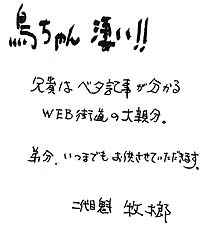 鳥ちゃん 凄い!!
兄貴は ベタ記事が分かる
WEB街道の大親分。
弟分、いつまでもお供させていただきます。
二代目魁 牧太郎